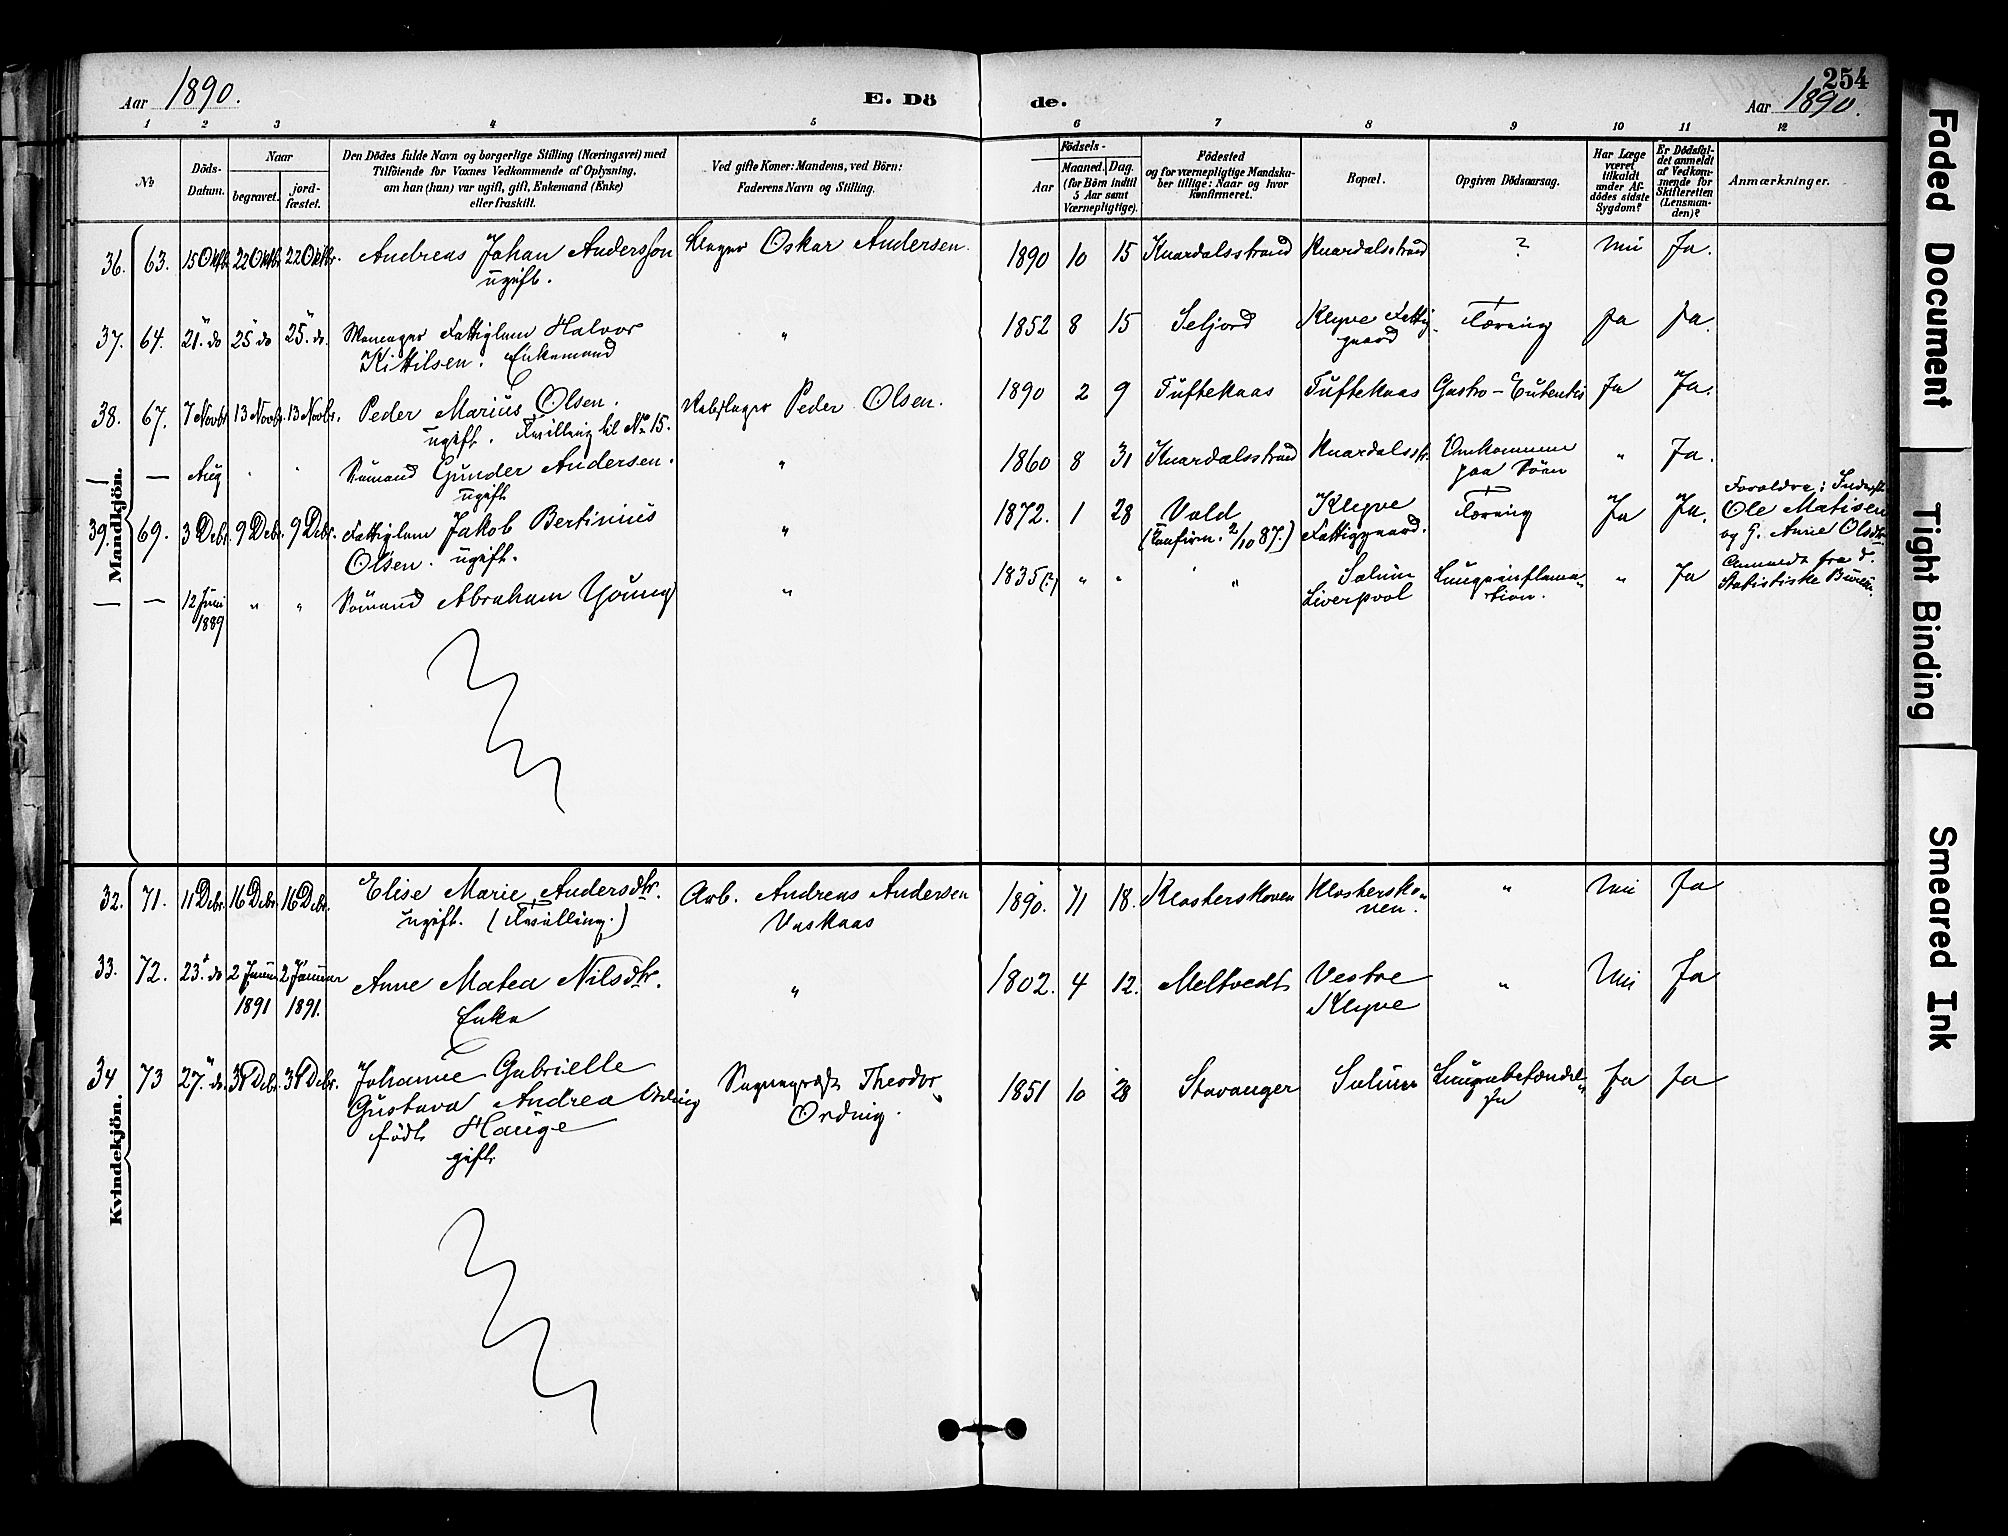 254
Aar 1890.
E. Döde.
Aar 1890.
1 2 3 4 5 6 7 8 9 10 11 12
№
Döds-
Datum.
Naar
begravet.
jord-
fæstet.
Den Dödes fulde Navn og borgerlige Stilling (Næringsvei) med
Tilföiende for Voxnes Vedkommende af Oplysning,
om han (hun) var ugift, gift, Enkemand (Enke)
eller fraskilt.
Ved gifte Koner: Mandens, ved Börn:
Faderens Navn og Stilling.
Födsels-
Aar
Maaned. Dag.
(for Börn indtil
5 Aar samt
Værnepligtige).
Födested
og for værnepligtige Mandska-
ber tillige: Naar og hvor
konfirmeret.
Bopæl.
Opgiven Dödsaarsag.
Har Læge
været
tilkaldt
under Af-
dödes sidste
Sygdom?
Er Dödsfal-
det anmeldt
af Vedkom-
mende for
Skifteretten
(Lensman-
den)?
Anmærkninger.
Mandkjön.
36. 63. 15 Oktb. 22 Oktb. 22 Oktbr. Andreas Johan Anderssön Oskar Andersen. 1890 10 15 Knardalsstrand Knardalsstrand ? Nei Ja.
ugift.
37. 64. 21. do 25 do 25. do. Fattiglem Halvor " 1852 8 15 Seljord Klyve Fattig- Tæring Ja Ja.
Kittilsen. Enkemand gaard
38. 67. 7 Novbr 13 Novbr 13 Novbr. Peder Marius Olsen. Peder Olsen. 1890 2 9 Tuftekaas Tuftekaas Gastro-Enteritis Ja Ja.
ugift. Tvilling til No 15.
— — Aug " " Sömand Gunder Andersen. " 1860 8 31 Knardalsstrand Knardalsstr. Omkommen " Ja.
ugift paa Söen
39. 69. 3 Debr. 9 Debr. 9 Debr. Fattiglem Jakob Bertinius " 1872. 1 28 Vold Klyve Tæring Ja Ja. Forældre: Inderst
Olsen. ugift. (Konfirm. 2/10 87.) Fattiggaard. Ole Matisen
og G. Anne Olsdtr.
— — 12 Juni " " Sömand Abraham Young " 1835(?) " " " Solum Lungeinflama- " Ja Anmeldt fra d.
1889 Liverpool tion. Statistiske Bureau.
Kvindekjön.
32. 71. 11 Debr. 16 Debr. 16 Debr. Elise Marie Andersdtr. Arb. Andreas Andersen 1890. 11 18. Klosterskoven Klostersko- " Nei Ja
ugift. (Tvilling.) Vaskaas ven.
33. 72. 23. do 2 Januar 2 Januar Anne Matea Nilsdtr. " 1802. 4 12. Meltvedt Vestre " Nei Ja
1891 1891. Enke Klyve
34 73 27. do. 31 Debr. 31 Debr. Johanne Gabrielle Theodor 1851 10 28 Stavanger Solum Lungebetændel- Ja Ja
Gustava Andrea Ording Ording. se
født Hauge
gift.
Faded Document
Tight Binding
Smeared Ink